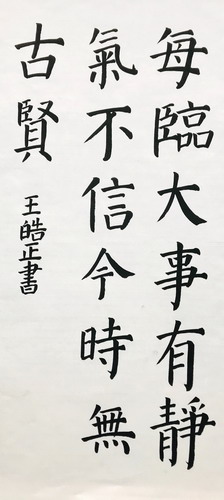 每臨大事有靜
氣不信今時無
古賢
王皓正書